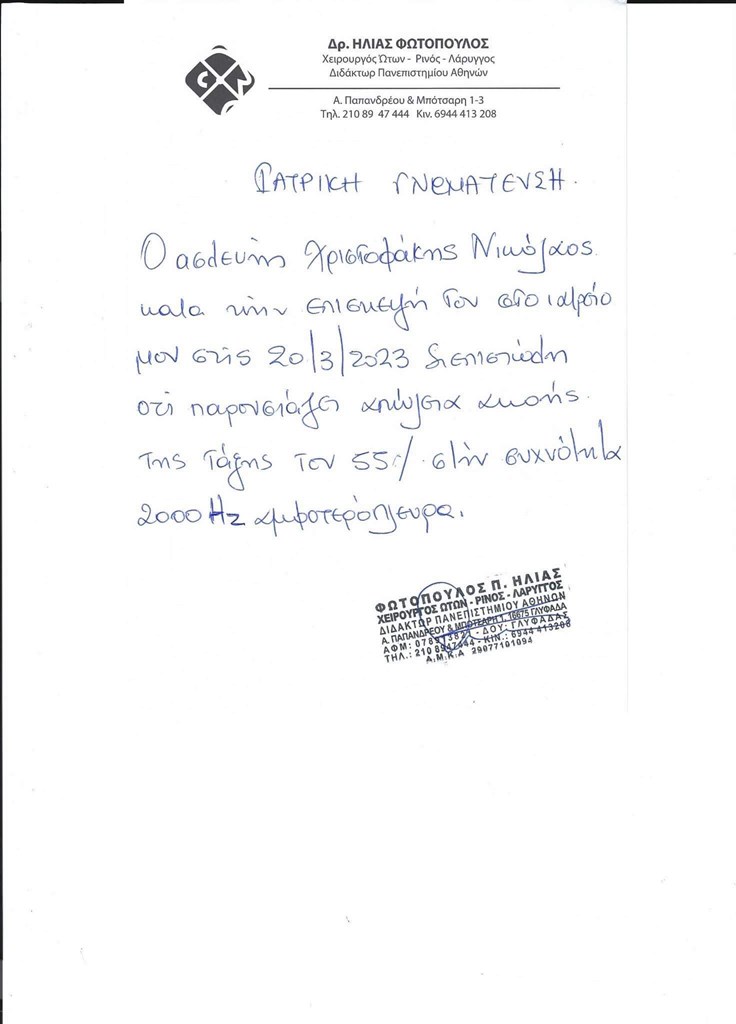 Δρ. ΗΛΙΑΣ ΦΩΤΟΠΟΥΛΟΣ
Χειρουργός Ώτων - Ρινός - Λάρυγγος
Διδάκτωρ Πανεπιστημίου Αθηνών
Α. Παπανδρέου & Μπότσαρη 1-3
Τηλ. 210 89 47 444 Κιν. 6944 413 208
ΙΑΤΡΙΚΗ ΓΝΩΜΑΤΕΥΣΗ.
Ο ασθενής Χριστοφάκης Νικόλαος
κατα την επισκεψή του στο ιατρείο
μου στις 20/3/2023 διεπιστώθη
οτι παρουσιάζει απώλεια ακοής
της τάξης του 55% στην συχνότητα
2000 Hz αμφοτερόπλευρα.
ΦΩΤΟΠΟΥΛΟΣ Π. ΗΛΙΑΣ
ΧΕΙΡΟΥΡΓΟΣ ΩΤΩΝ - ΡΙΝΟΣ - ΛΑΡΥΓΓΟΣ
ΔΙΔΑΚΤΩΡ ΠΑΝΕΠΙΣΤΗΜΙΟΥ ΑΘΗΝΩΝ
Α. ΠΑΠΑΝΔΡΕΟΥ & ΜΠΟΤΣΑΡΗ 1, 16675 ΓΛΥΦΑΔΑ
ΑΦΜ: - ΔΟΥ: ΓΛΥΦΑΔΑΣ
ΤΗΛ.: 210 8947444 - ΚΙΝ.: 6944 413208
Α.Μ.Κ.Α 29077101094